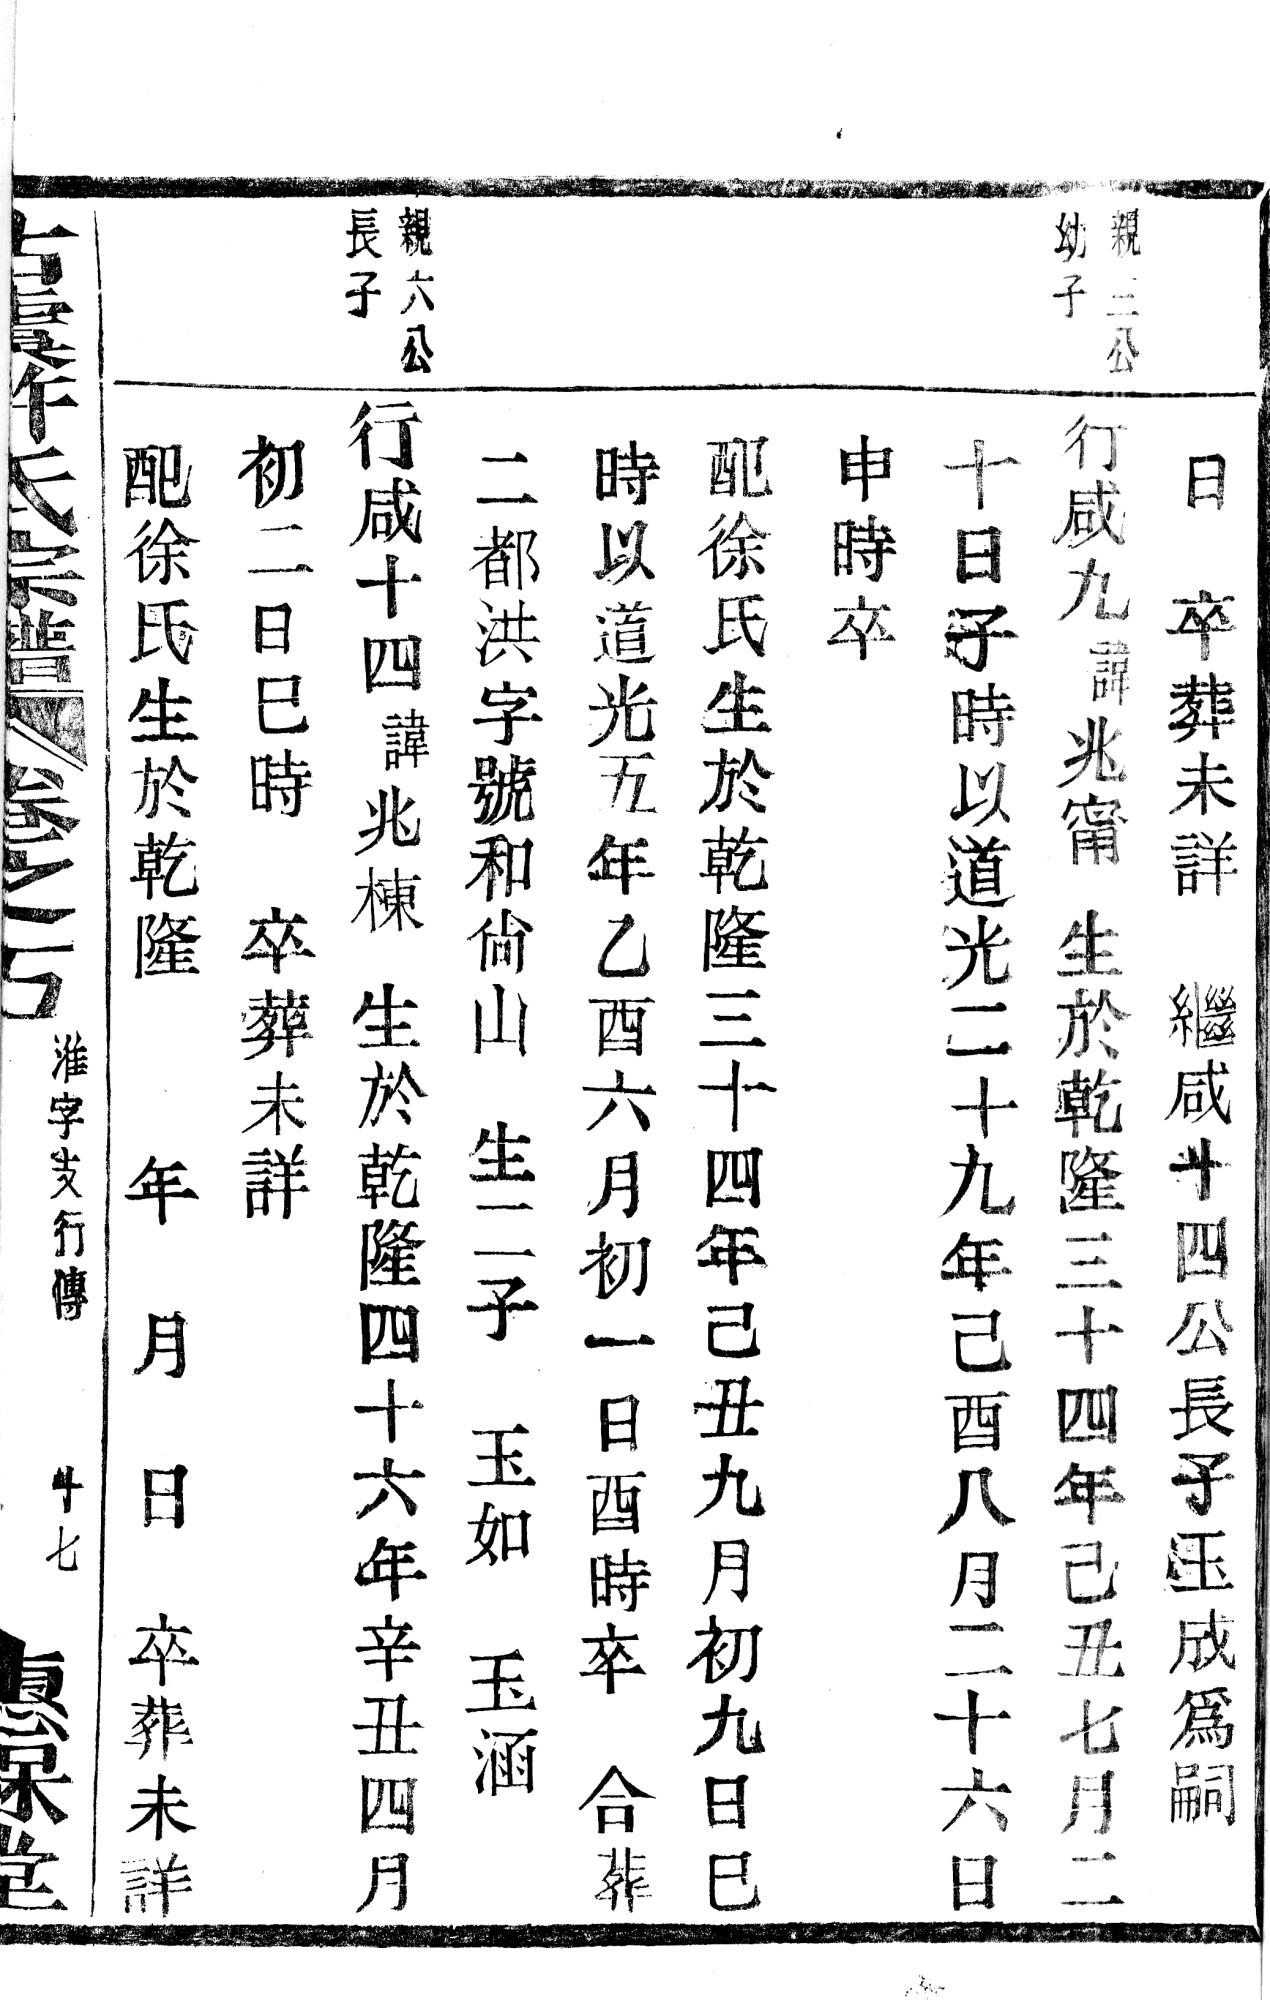 日　卒葬未詳　繼咸十四公長子玉成爲嗣
親三公
幼子
行咸九諱兆甯　生於乾隆三十四年己丑七月二
十日子時以道光二十九年己酉八月二十六日
申時卒
配徐氏生於乾隆三十四年己丑九月初九日巳
時以道光五年乙酉六月初一日酉時卒　合葬
二都洪字號和尙山　生二子　玉如　玉涵
親六公
長子
行咸十四諱兆棟　生於乾隆四十六年辛丑四月
初二日巳時　卒葬未詳
配徐氏生於乾隆　　年　月　日　卒葬未詳
氏宗譜　卷之　淮字支行傳　十七　堂